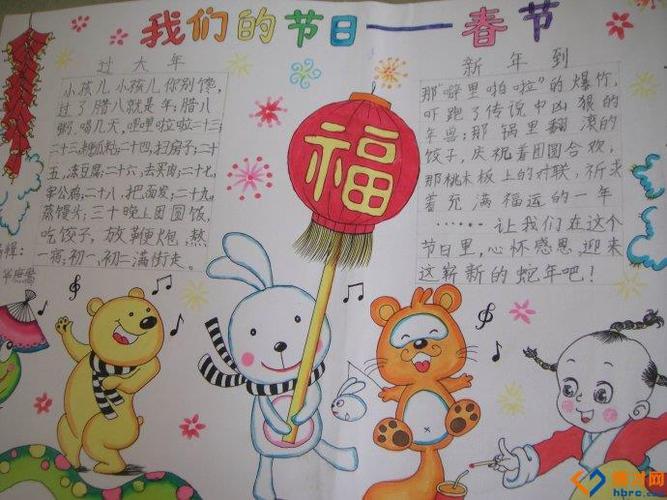 我们的节日——春节
过大年
小孩儿小孩儿你别馋,
过了腊八就是年;腊八
粥,喝几天,哩哩啦啦二十三
二十三,糖瓜粘;二十四,扫房子;二十
五,冻豆腐;二十六,去买肉;二十七,
宰公鸡;二十八,把面发;二十九,
蒸馒头;三十晚上团圆饭,
吃饺子,放鞭炮,熬
一宿;初一、初二满街走。
新年到
那“噼里啪啦”的爆竹,
吓跑了传说中凶狠的
年兽;那锅里翻滚的
饺子,庆祝着团圆合欢,
那桃木板上的对联,祈求
着充满福运的一年
……让我们在这个
节日里,心怀感恩,迎来
这崭新的蛇年吧!
福
hbrc.com